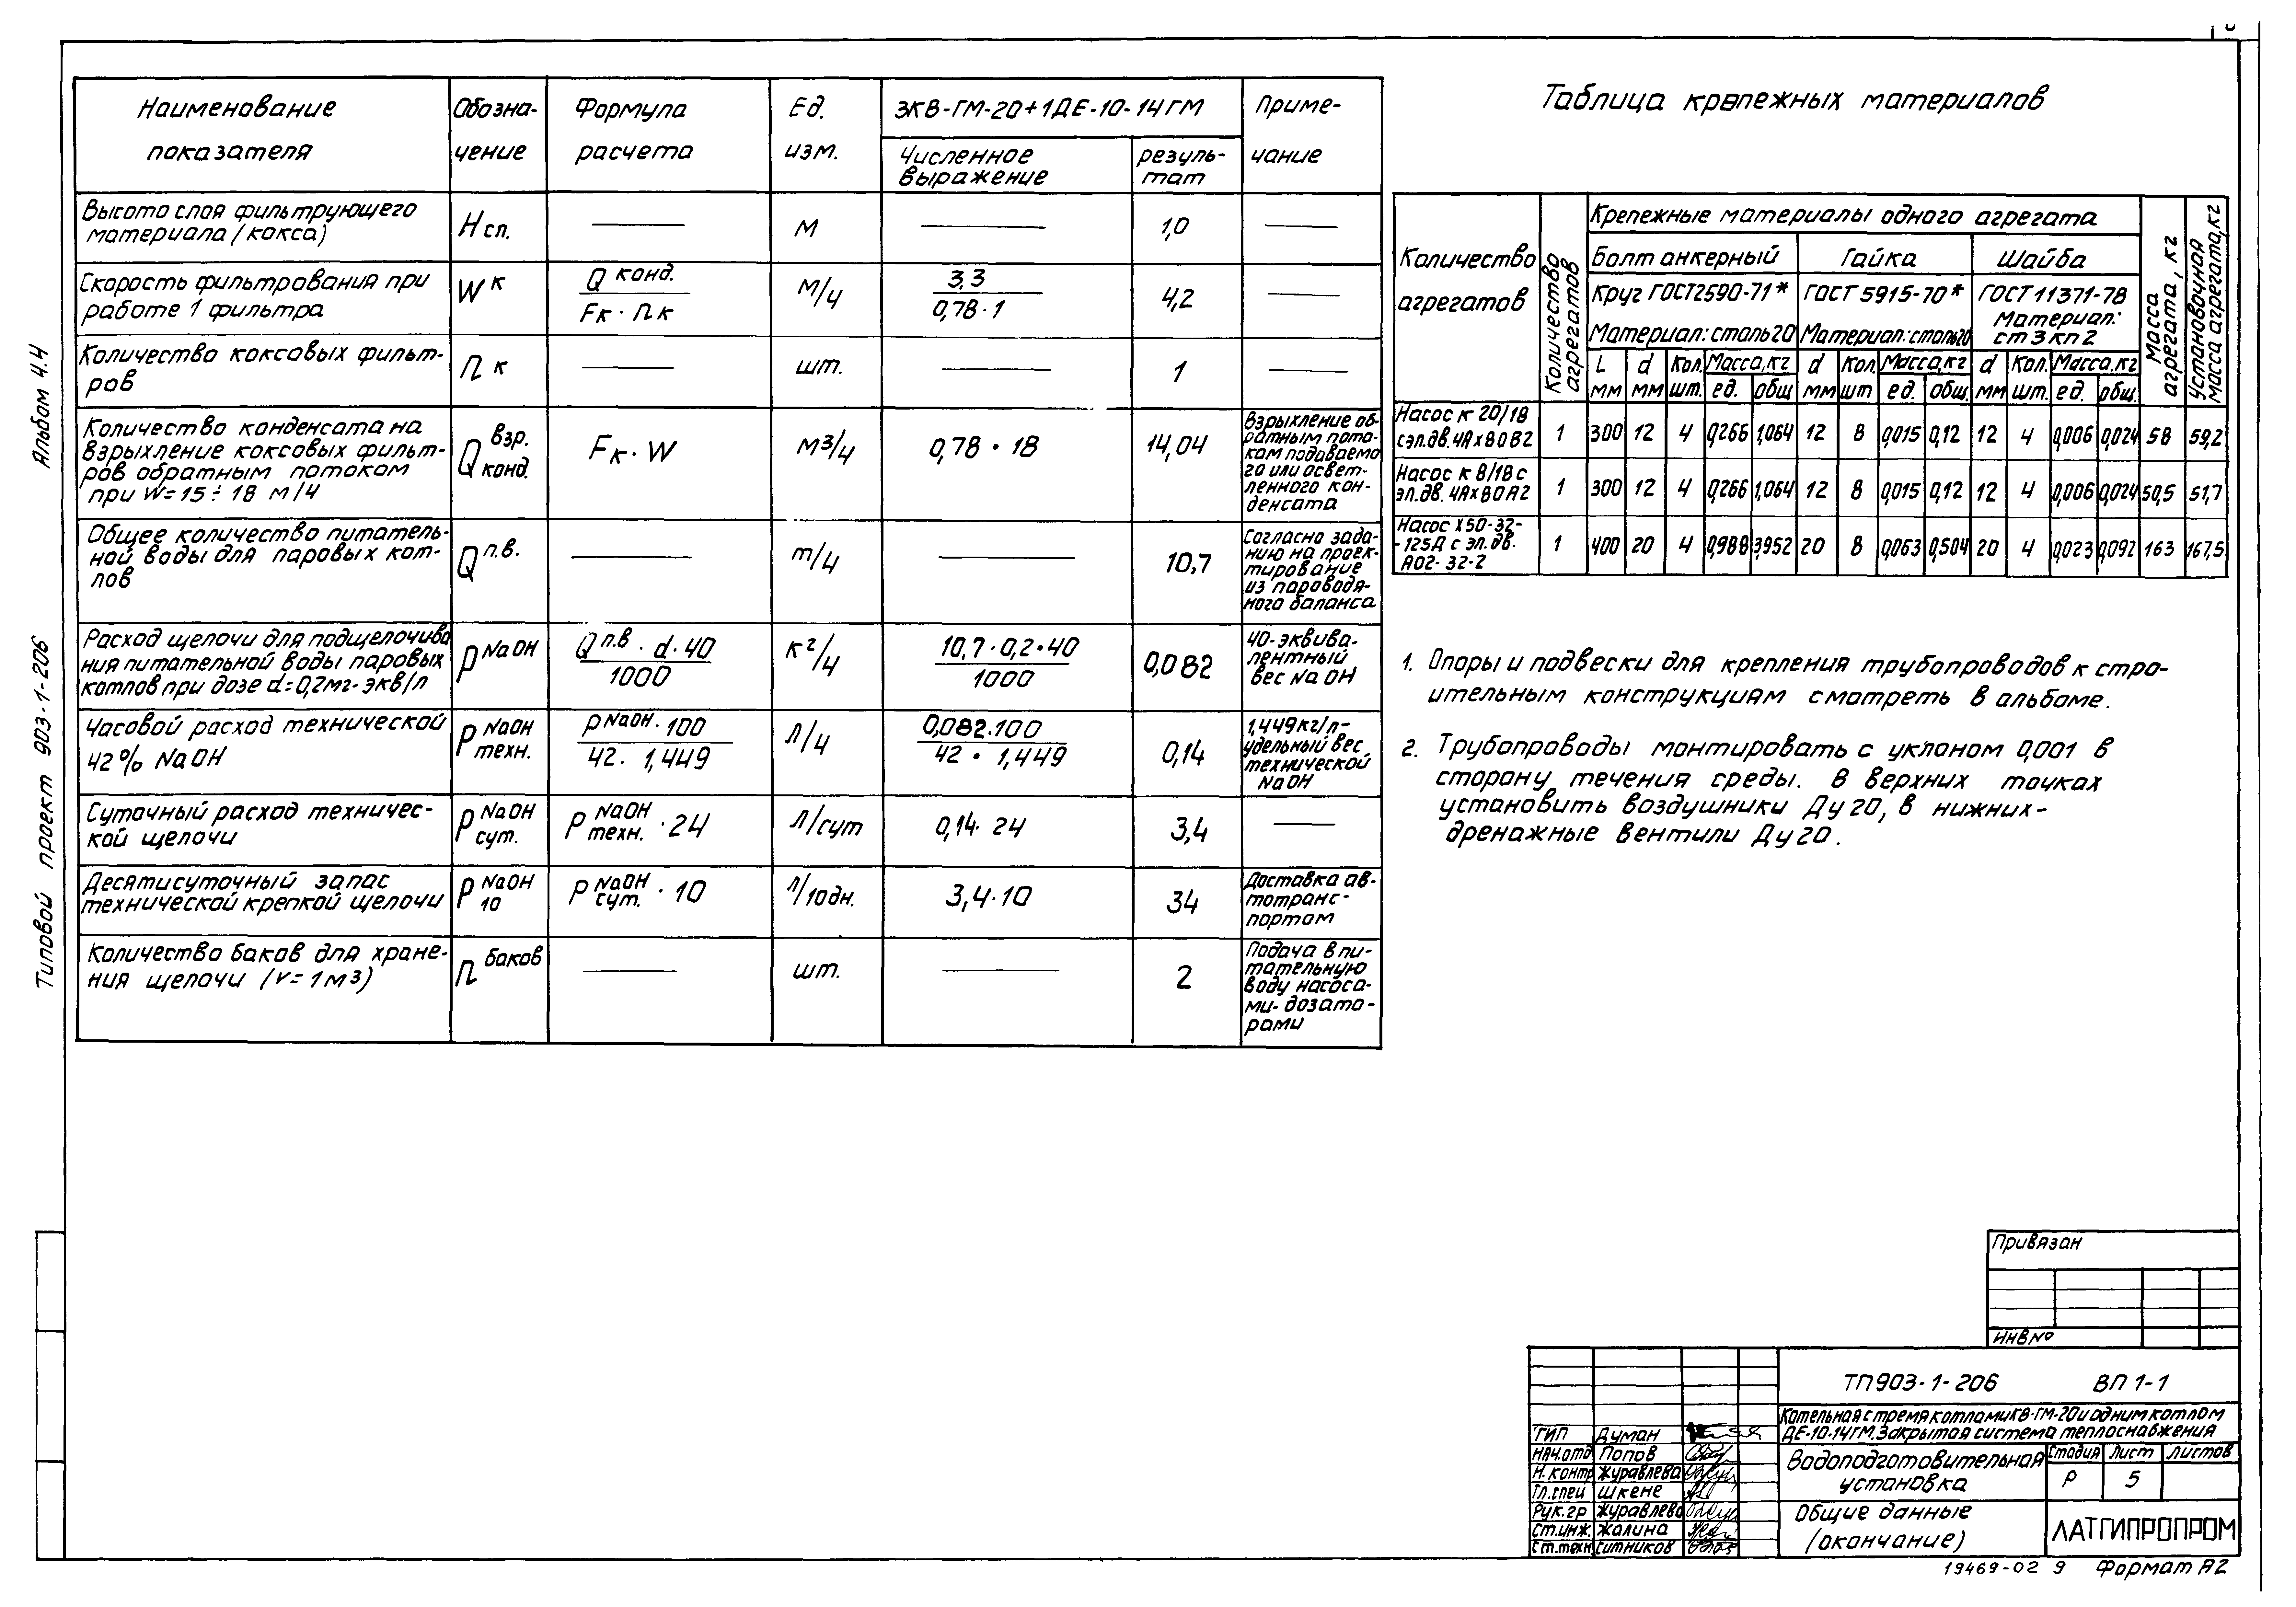 Альбом 4.4
Типовой проект 903-1-206
Наименование показателя | Обозна-чение | Формула расчета | Ед. изм. | 3КВ-ГМ-20+1ДЕ-10-14ГМ | Приме-чание
Численное выражение | резуль-тат
Высота слоя фильтрующего
материала (кокса) | Hсл. | — | м | — | 1,0 | —
Скорость фильтрования при
работе 1 фильтра | W к | Q конд. / Fк · nк | м/ч | 3,3 / 0,78·1 | 4,2 | —
Количество коксовых фильт-
ров | n к | — | шт. | — | 1 | —
Количество конденсата на
взрыхление коксовых фильт-
ров обратным потоком
при W=15÷18 м/ч | Q взр. конд. | Fк · W | м3/ч | 0,78 · 18 | 14,04 | Взрыхление об-
ратным пото-
ком подаваемо
го или освет-
ленного кон-
денсата
Общее количество питатель-
ной воды для паровых кот-
лов | Q п.в. | — | т/ч | — | 10,7 | Согласно зада-
нию на проек-
тирование
из пароводя-
ного баланса
Расход щелочи для подщелочива
ния питательной воды паровых
котлов при дозе d=0,2мг-экв/л | P NaOH | Q п.в · d·40 / 1000 | кг/ч | 10,7·0,2·40 / 1000 | 0,082 | 40-эквива-
лентный
вес NaOH
Часовой расход технической
42% NaOH | P NaOH техн. | P NaOH · 100 / 42 · 1,449 | л/ч | 0,082·100 / 42 · 1,449 | 0,14 | 1,449кг/л-
удельный вес
технической
NaOH
Суточный расход техничес-
кой щелочи | P NaOH сут. | P NaOH техн. · 24 | л/сут | 0,14·24 | 3,4 | —
Десятисуточный запас
технической крепкой щелочи | P NaOH 10 | P NaOH сут. · 10 | л/10дн. | 3,4·10 | 34 | Доставка ав-
тотранс-
портом
Количество баков для хране-
ния щелочи (V=1м3) | n баков | — | шт. | — | 2 | Подача в пи-
тательную
воду насоса-
ми-дозато-
рами
Таблица крепежных материалов
Количество агрегатов | Количество агрегатов | Крепежные материалы одного агрегата | Масса агрегата, кг | Установочная масса агрегата, кг
Болт анкерный | Гайка | Шайба
Круг ГОСТ2590-71* | ГОСТ 5915-70* | ГОСТ 11371-78
Материал: сталь 20 | Материал: сталь20 | Материал: ст 3 кп 2
L мм | d мм | Кол. шт. | Масса, кг ед. | общ | d мм | Кол. шт | Масса, кг ед. | общ. | d мм | Кол. шт. | Масса, кг ед. | общ.
Насос к 20/18
с эл.дв.4Ах80В2 | 1 | 300 | 12 | 4 | 0,266 | 1,064 | 12 | 8 | 0,015 | 0,12 | 12 | 4 | 0,006 | 0,024 | 58 | 59,2
Насос к 8/18 с
эл.дв. 4Ах80А2 | 1 | 300 | 12 | 4 | 0,266 | 1,064 | 12 | 8 | 0,015 | 0,12 | 12 | 4 | 0,006 | 0,024 | 50,5 | 51,7
Насос Х50-32-
-125Д с эл.дв.
А02-32-2 | 1 | 400 | 20 | 4 | 0,988 | 3,952 | 20 | 8 | 0,063 | 0,504 | 20 | 4 | 0,023 | 0,092 | 163 | 167,5
1. Опоры и подвески для крепления трубопроводов к стро-
ительным конструкциям смотреть в альбоме.
2. Трубопроводы монтировать с уклоном 0,001 в
сторону течения среды. В верхних точках
установить воздушники Ду 20, в нижних-
дренажные вентили Ду 20.
Привязан
ИНВ №
ТП903-1-206 ВП 1-1
Котельная с тремя котлами КВ-ГМ-20 и одним котлом
ДЕ-10-14ГМ. Закрытая система теплоснабжения
ГИП Думан
Нач.отд Попов
Н. контр Журавлева
Гл.спец Шкене
Рук.гр Журавлева
Ст.инж. Жалина
Ст.техн Ситников
Водоподготовительная
установка
Стадия Лист Листов
Р 5
Общие данные
(окончание)
ЛАТГИПРОПРОМ
19469-02 9 Формат А2